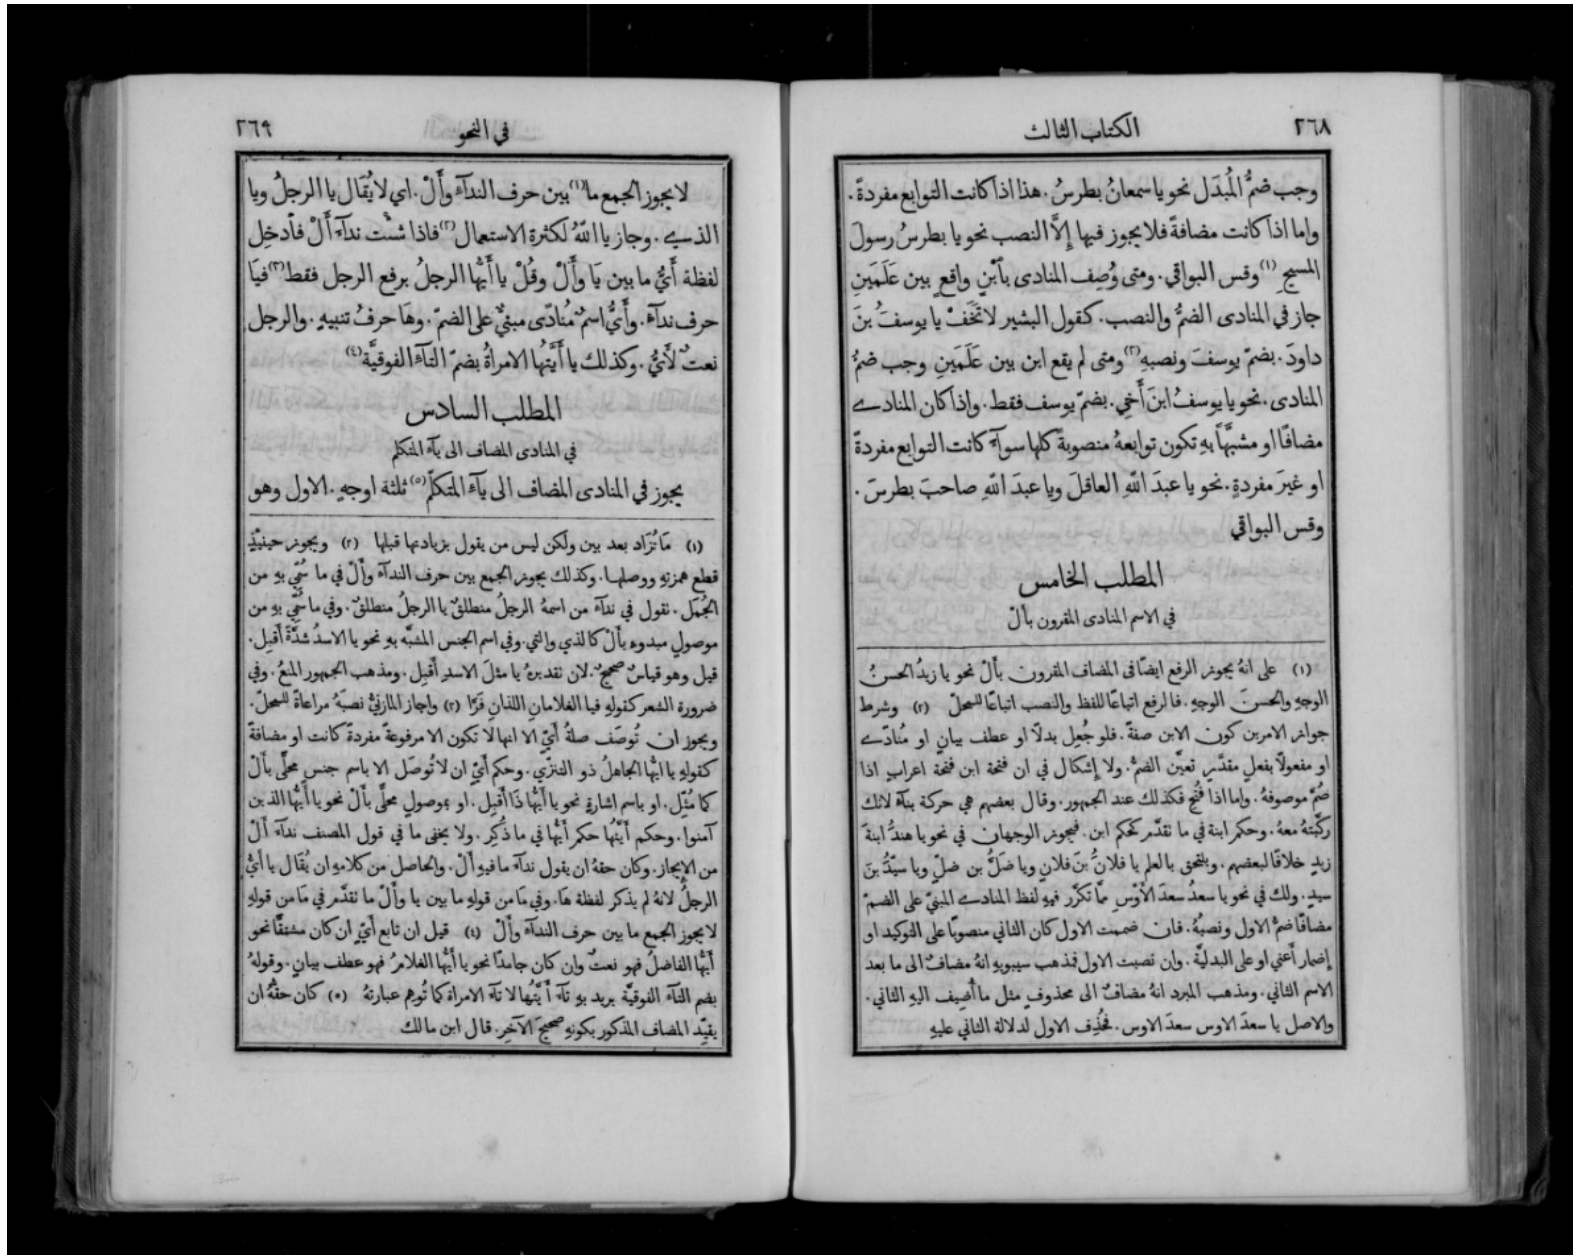 ٢٦٨
الكتاب الثالث
وجب ضمُّ المُبدَل نحو يا سمعانُ بطرسُ. هذا اذا كانت التوابع مفردةً.
واما اذا كانت مضافةً فلا يجوز فيها إِلَّا النصب نحو يا بطرسُ رسولَ
المسيحِ (١) وقس البواقي. ومتى وُصِف المنادى بٱبْنٍ واقعٍ بين عَلَمَينِ
جاز في المنادى الضمُّ والنصب. كقول البشير لا تَخَفْ يا يوسفَُ بنَ
داودَ. بضمّ يوسفَ ونصبهِ (٢) ومتى لم يقع ابن بين عَلَمَينِ وجب ضمُّ
المنادى. نحو يا يوسفُ ابنَ أَخِي. بضمّ يوسف فقط. واذا كان المنادى
مضافًا او مشبَّهًا بهِ تكون توابعهُ منصوبةً كلها سوآء كانت التوابع مفردةً
او غيرَ مفردةٍ. نحو يا عبدَ اللّٰهِ العاقلَ ويا عبدَ اللّٰهِ صاحبَ بطرسَ.
وقس البواقي
المطلب الخامس
في الاسم المنادى المقرون بأَلْ
(١) على انهُ يجوز الرفع ايضًا فى المضاف المقرون بأَلْ نحو يا زيدُ الحسنُ
الوجهِ والحسنَ الوجهِ. فالرفع اتباعًا للفظ والنصب اتباعًا للمحلّ (٢) وشرط
جواز الامرين كون الابن صفةً. فلو جُعِل بدلًا او عطف بيانٍ او مُنادًى
او مفعولًا بفعلٍ مقدَّرٍ تعيَّن الضمُّ. ولا إِشكال في ان فتحة ابن فتحة اعرابٍ اذا
ضُمَّ موصوفهُ. واما اذا فُتِح فكذلك عند الجمهور. وقال بعضهم هي حركة بنآء لانك
ركَّبتهُ معهُ. وحكم ابنة في ما تقدَّم كحكم ابن. فيجوز الوجهان في نحو يا هندَُ ابنةَ
زيدٍ خلافًا لبعضهم. ويلتحق بالعلم يا فلانَُ بنَ فلانٍ ويا ضَلَُّ بن ضلٍّ ويا سيّدَُ بنَ
سيدٍ. ولك في نحو يا سعدَُ سعدَ الأَوْسِ ممَّا تكرَّر فيهِ لفظ المنادى المبنيّ على الضمّ
مضافًا ضمُّ الاول ونصبهُ. فان ضممت الاول كان الثاني منصوبًا على التوكيد او
إِضمار أَعني او على البدليَّة. وان نصبت الاول فمذهب سيبويهِ انهُ مضافٌ الى ما بعد
الاسم الثاني. ومذهب المبرد انهُ مضافٌ الى محذوفٍ مثل ما أُضِيف اليهِ الثاني.
والاصل يا سعدَ الاوس سعدَ الاوس. فحُذِف الاول لدلالة الثاني عليهِ
في النحو
٢٦٩
لا يجوز الجمع ما (١) بين حرف الندآء وأَلْ. اي لا يُقَال يا الرجلُ ويا
الذي. وجاز يا اللّٰهُ لكثرة الاستعمال (٢) فاذا شئت ندآءَ أَلْ فأَدخِل
لفظة أَيُّ ما بين يَا وأَلْ وقُلْ يا أَيُّها الرجلُ برفع الرجل فقط (٣) فيَا
حرف ندآء. وأَيُّ اسمٌ مُنادًى مبنيٌّ على الضمّ. وهَا حرفُ تنبيهٍ. والرجل
نعتٌ لأَيُّ. وكذلك يا أَيَّتُها الامراةُ بضمّ التآء الفوقيَّة (٤)
المطلب السادس
في المنادى المضاف الى يآء المتكلم
يجوز في المنادى المضاف الى يآء المتكلّم (٥) ثلثة اوجهٍ. الاول وهو
(١) مَا تُزَاد بعد بين ولكن ليس من يقول بزيادتها قبلها (٢) ويجوز حينئذٍ
قطع همزتهِ ووصلها. وكذلك يجوز الجمع بين حرف الندآء وأَلْ في ما سُمِّي بهِ من
الجُمَل. نقول في ندآء من اسمهُ الرجلُ منطلقٌ يا الرجلُ منطلقٌ. وفي ما سُمِّي بهِ من
موصولٍ مبدوء بأَلْ كالذي والتي. وفي اسم الجنس المشبَّه بهِ نحو يا الاسدُ شدَّةً أَقبِل.
قيل وهو قياسٌ صحيحٌ. لان تقديرهُ يا مثلَ الاسدِ أَقبِل. ومذهب الجمهور المنعُ. وفي
ضرورة الشعر كقولهِ فيا الغلامانِ اللذانِ فَرَّا (٣) واجاز المازنيُّ نصبَهُ مراعاةً للمحلّ.
ويجوز ان تُوصَف صلةُ أَيّ الا انها لا تكون الا مرفوعةً مفردةً كانت او مضافةً
كقولهِ يا ايُّها الجاهلُ ذو التنزّي. وحكم أَيّ ان لا تُوصَل الا باسم جنسٍ محلًّى بأَلْ
كما مُثِّل. او باسم اشارةٍ نحو يا أَيُّها ذَا أَقبِل. او بموصولٍ محلًّى بأَلْ نحو يا أَيُّها الذين
آمنوا. وحكم أَيَّتُها حكم أَيُّها في ما ذُكِر. ولا يخفى ما في قول المصنف ندآءَ أَلْ
من الإِيجاز. وكان حقهُ ان يقول ندآءَ ما فيهِ أَلْ. والحاصل من كلامهِ ان يُقَال يا أَيُّ
الرجلُ لانهُ لم يذكر لفظة هَا. وفي مَا من قولهِ ما بين يا وأَلْ ما تقدَّم في مَا من قولهِ
لا يجوز الجمع ما بين حرف الندآء وأَلْ (٤) قيل ان تابع أَيّ ان كان مشتقًّا نحو
أَيُّها الفاضلُ فهو نعتٌ وان كان جامدًا نحو يا أَيُّها الغلامُ فهو عطف بيانٍ. وقولهُ
بضم التآء الفوقيَّة يريد بهِ تآء أَيَّتُها لا تآء الامراة كما تُوهِم عبارتهُ (٥) كان حقُّهُ ان
يقيِّد المضاف المذكور بكونهِ صحيحَ الآخِر. قال ابن مالك